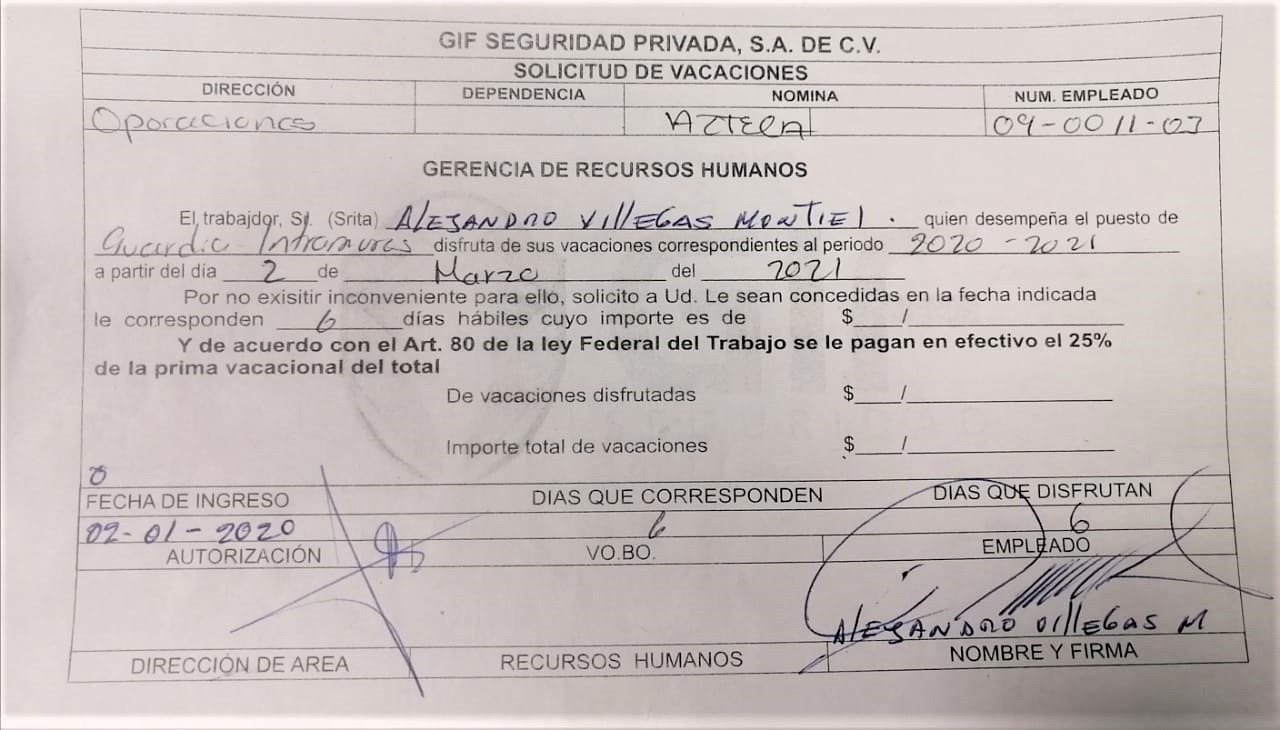 GIF SEGURIDAD PRIVADA, S.A. DE C.V.
SOLICITUD DE VACACIONES
DIRECCIÓN DEPENDENCIA NOMINA NUM. EMPLEADO
Operaciones AZTECA 09-0011-03
GERENCIA DE RECURSOS HUMANOS
El trabajdor, Sr. (Srita) ALEJANDRO VILLEGAS MONTIEL. quien desempeña el puesto de
Guardia Intramuros disfruta de sus vacaciones correspondientes al periodo 2020 - 2021
a partir del día 2 de Marzo del 2021
Por no exisitir inconveniente para ello, solicito a Ud. Le sean concedidas en la fecha indicada
le corresponden 6 días hábiles cuyo importe es de $ /
Y de acuerdo con el Art. 80 de la ley Federal del Trabajo se le pagan en efectivo el 25%
de la prima vacacional del total
De vacaciones disfrutadas $ /
Importe total de vacaciones $ /
FECHA DE INGRESO DIAS QUE CORRESPONDEN DIAS QUE DISFRUTAN
02-01-2020 6 6
AUTORIZACIÓN VO.BO. EMPLEADO
ALEJANDRO VILLEGAS M
DIRECCIÓN DE AREA RECURSOS HUMANOS NOMBRE Y FIRMA